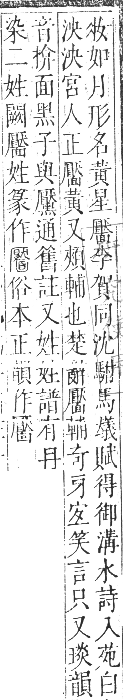 妝如月形名黃星靨李賀同沈駙馬㙯賦得御溝水詩入苑白
泱泱宮人正靨黃又頰輔也楚辭靨輔奇牙宜笑言只又琰韻
音揜面黑子與黶通舊註又姓姓譜有冄
染二姓闕靨姓篆作靨俗本正韻作靨